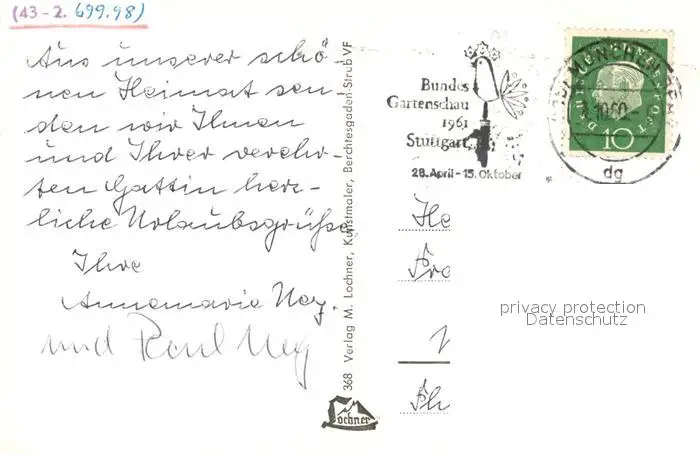 (43-2. 699.98)
Aus unserer schö
nen Heimat sen
den wir Ihnen
und Ihrer verehr-
ten Gattin herz-
liche Urlaubsgrüße
Ihre
Annemarie Ney.
und Paul Ney
368 Verlag M. Lochner, Kunstmaler, Berchtesgaden-Strub VF
Lochner
Bundes
Gartenschau
1961
Stuttgart
28. April - 15. Oktober
DEUTSCHE BUNDESPOST
10
dg
He
Fra
privacy protection
Datenschutz